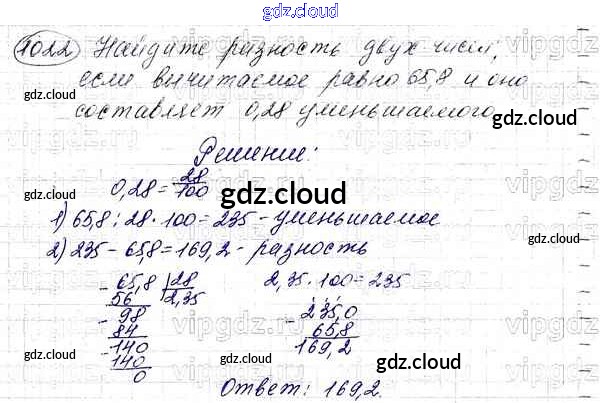 gdz.cloud
1022 Найдите разность двух чисел,
если вычитаемое равно 65,8 и оно
gdz.cloud
составляет 0,28 уменьшаемого.
gdz.cloud
Решение:
0,28 = 28/100
gdz.cloud
1) 65,8 : 28 · 100 = 235 - уменьшаемое
2) 235 - 65,8 = 169,2 - разность
- 65,8 | 28 2,35 · 100 = 235
56 2,35
- 98 - 235,0
84 65,8
- 140 169,2
140
0
gdz.cloud
gdz.cloud
gdz.cloud
Ответ: 169,2.
gdz.cloud